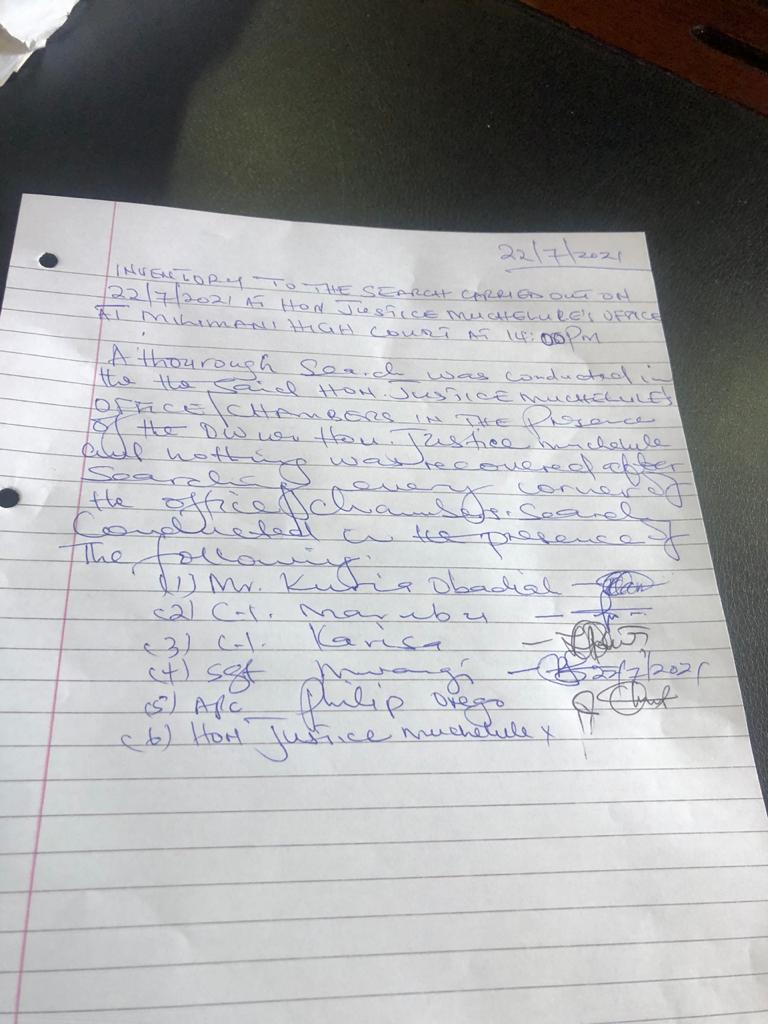 22/7/2021
INVENTORY TO THE SEARCH CARRIED OUT ON
22/7/2021 AT HON JUSTICE MUCHELULE'S OFFICE
AT MILIMANI HIGH COURT AT 14:00PM
A thourough Search was conducted in
the the said HON. JUSTICE MUCHELULE'S
OFFICE/CHAMBERS IN THE Presence
of the Owner Hon. Justice muchelule
and nothing was recovered after
Searching every corner of
the office/chambers. Search
Conducted in the presence of
The following:
(1) Mr. Kuria Obadiah -
(2) C.I. Marubu -
(3) C.I. Karisa -
(4) Sgt Mwangi - 22/7/2021
(5) A/C Philip Orego
(6) HON Justice muchelule x